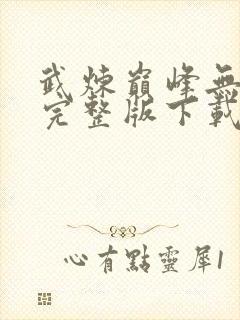 武煉巔峰無
完整版下載
心有點靈犀1